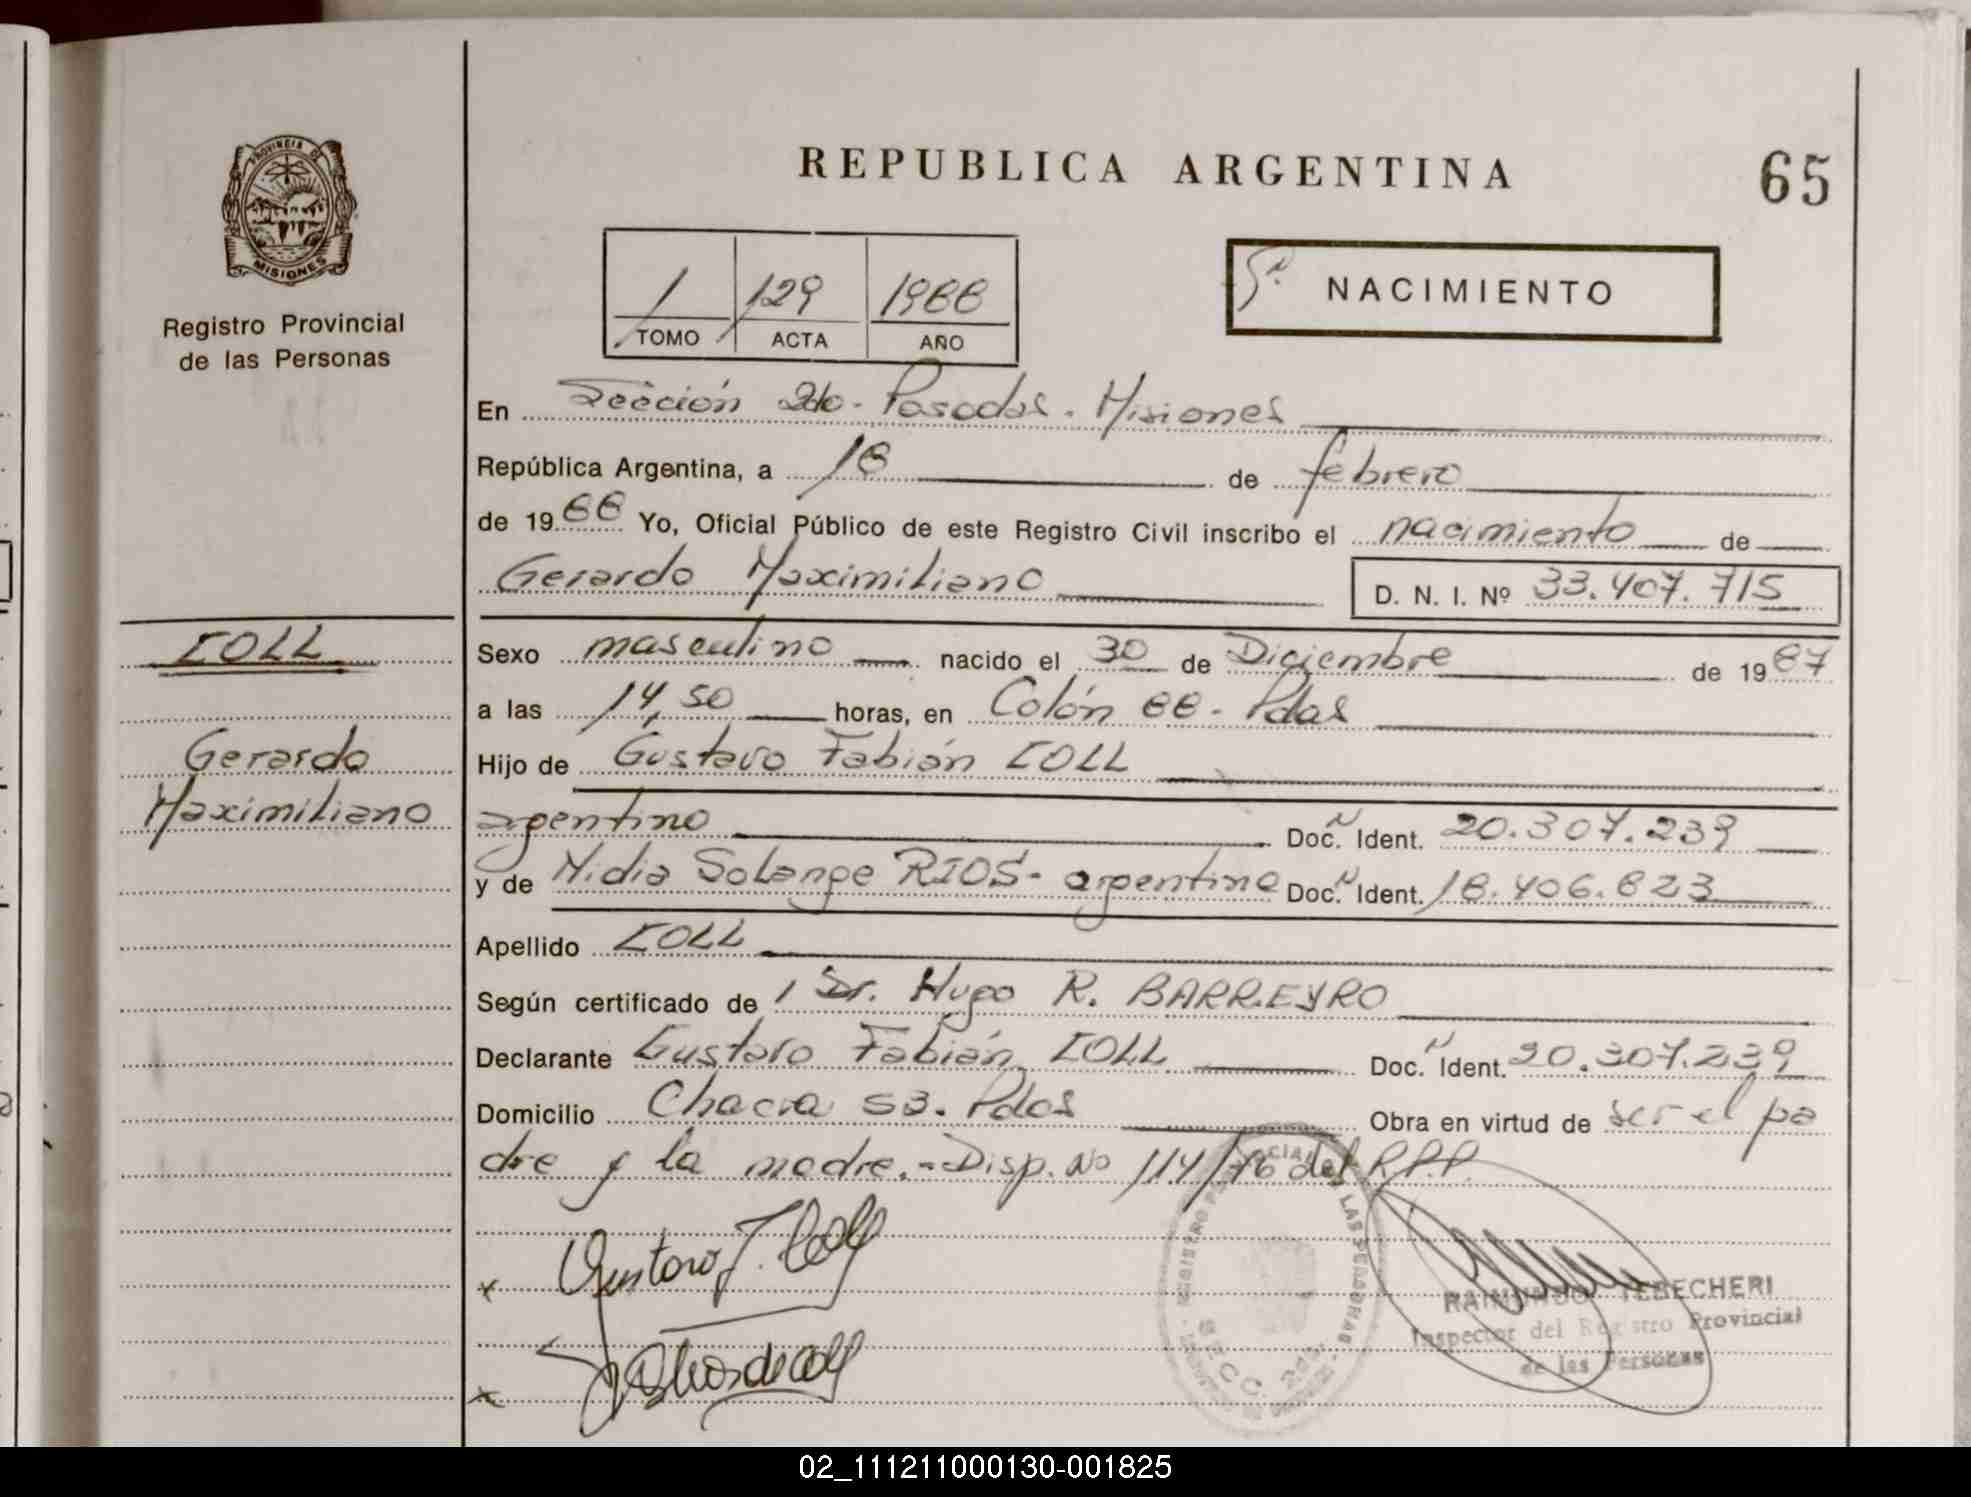 PROVINCIA DE
MISIONES
Registro Provincial
de las Personas
REPUBLICA ARGENTINA
65
1 129 1988
TOMO ACTA AÑO
NACIMIENTO
En Sección 2da. Posadas. Misiones
República Argentina, a 18 de febrero
de 1988 Yo, Oficial Público de este Registro Civil inscribo el nacimiento de
Gerardo Maximiliano D. N. I. Nº 33.407.715
COLL
Sexo masculino nacido el 30 de Diciembre de 1987
a las 14,50 horas, en Colón 88 - Pdas
Gerardo
Hijo de Gustavo Fabián COLL
Maximiliano
argentino Doc. Ident. 20.307.239
y de Nidia Solange RIOS - argentina Doc. Ident. 18.406.823
Apellido COLL
Según certificado de Dr. Hugo R. BARREYRO
Declarante Gustavo Fabián COLL Doc. Ident. 20.307.239
Domicilio Chacra 53. Pdas Obra en virtud de ser el pa
dre y la madre.- Disp. No 114/76 del R.P.P.
x Gustavo F. Coll
x
RAIMUNDO TEBECHERI
Inspector del Registro Provincial
de las Personas
SECC. 2da.
02_111211000130-001825